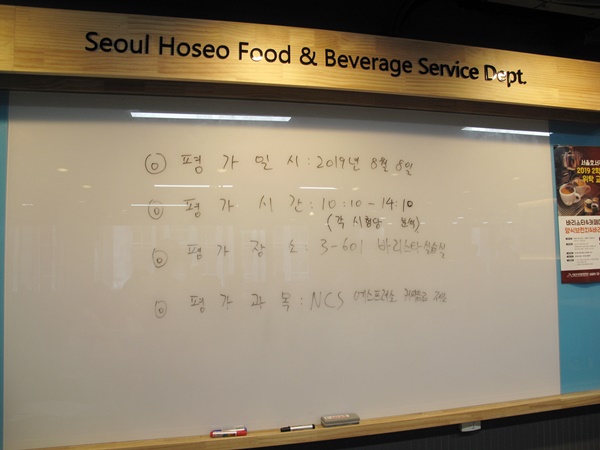 Seoul Hoseo Food & Beverage Service Dept.
◎ 평 가 일 시 : 2019년 8월 8일
◎ 평 가 시 간 : 10:10 - 14:10
(각 시험당
◎ 평 가 장 소 : 3-601 바리스타실습실
◎ 평 가 과 목 : NCS 에스프레소 커피음료 제조
서울호서
2019 2학
위탁 교
바리스타&카페